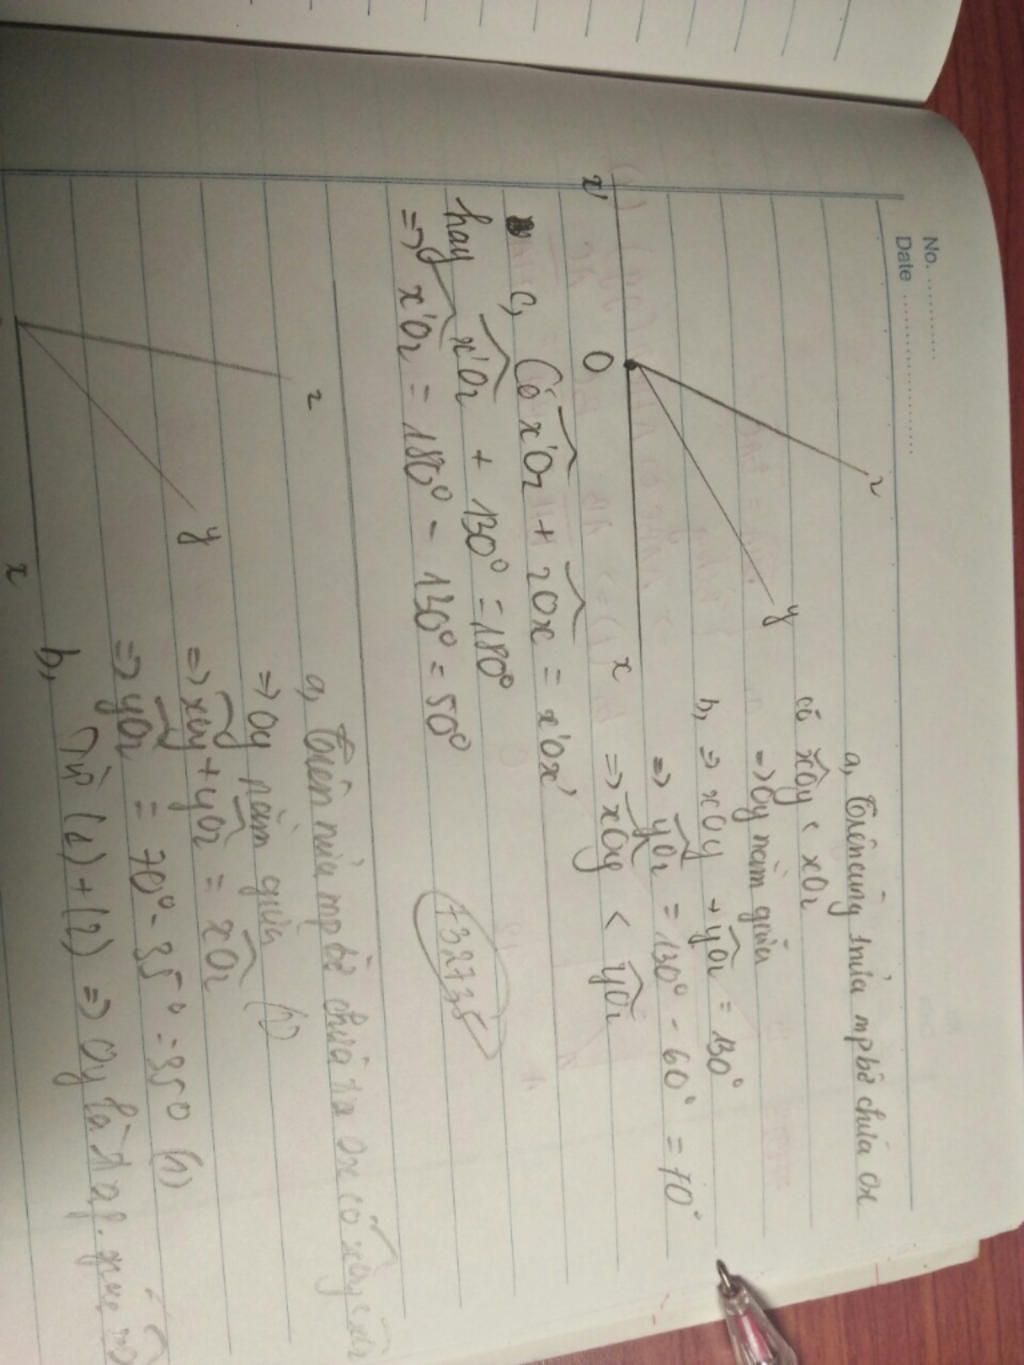 No. ............
Date ......................
z
y
x'
O
x
a, Trên cùng 1 nửa mp bờ chứa Ox
có xOy < xOz
=> Oy nằm giữa
b, => xOy + yOz = 130°
=> yOz = 130° - 60° = 70°
=> xOy < yOz
c, Có x'Oz + zOx = x'Ox'
hay x'Oz + 130° = 180°
=> x'Oz = 180° - 130° = 50°
z
y
x
a, Trên nửa mp bờ chứa tia Ox có xOy < xOz
=> Oy nằm giữa (1)
=> xOy + yOz = xOz
=> yOz = 70° - 35° = 35° (1)
b, Từ (1) + (2) => Oy là tia